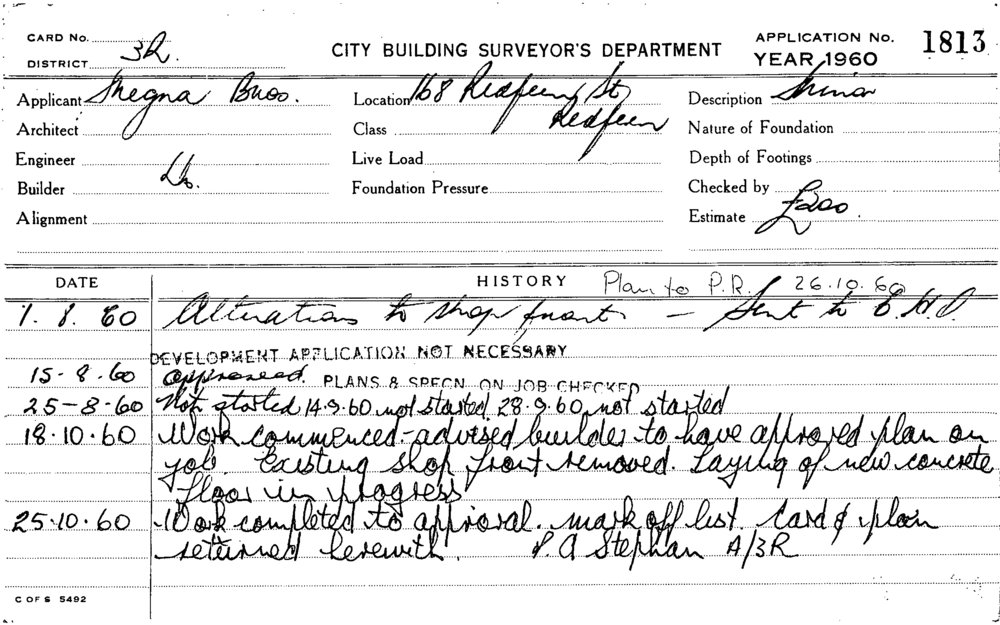 CARD No.
DISTRICT 3R.
CITY BUILDING SURVEYOR'S DEPARTMENT
APPLICATION No. 1813
YEAR 1960
Applicant Megna Bros.
Location 168 Redfern St Redfern
Description Minor
Architect
Class
Nature of Foundation
Engineer
Live Load
Depth of Footings
Builder
Foundation Pressure
Checked by
Alignment
Estimate £200
DATE HISTORY Plan to P.R. 26.10.60
1. 8. 60 Alterations to shop front - Sent to E.H.O.
DEVELOPMENT APPLICATION NOT NECESSARY
15-8-60 approved. PLANS & SPECN ON JOB CHECKED
25-8-60 Not started 14.9.60 not started 28.9.60 not started
18.10.60 Work commenced - advised builder to have approved plan on
job. Existing shop front removed. Laying of new concrete
floor in progress
25.10.60 Work completed to approval. mark off list. Card & plan
returned herewith. A Stephan A/3R
C OF S 5492